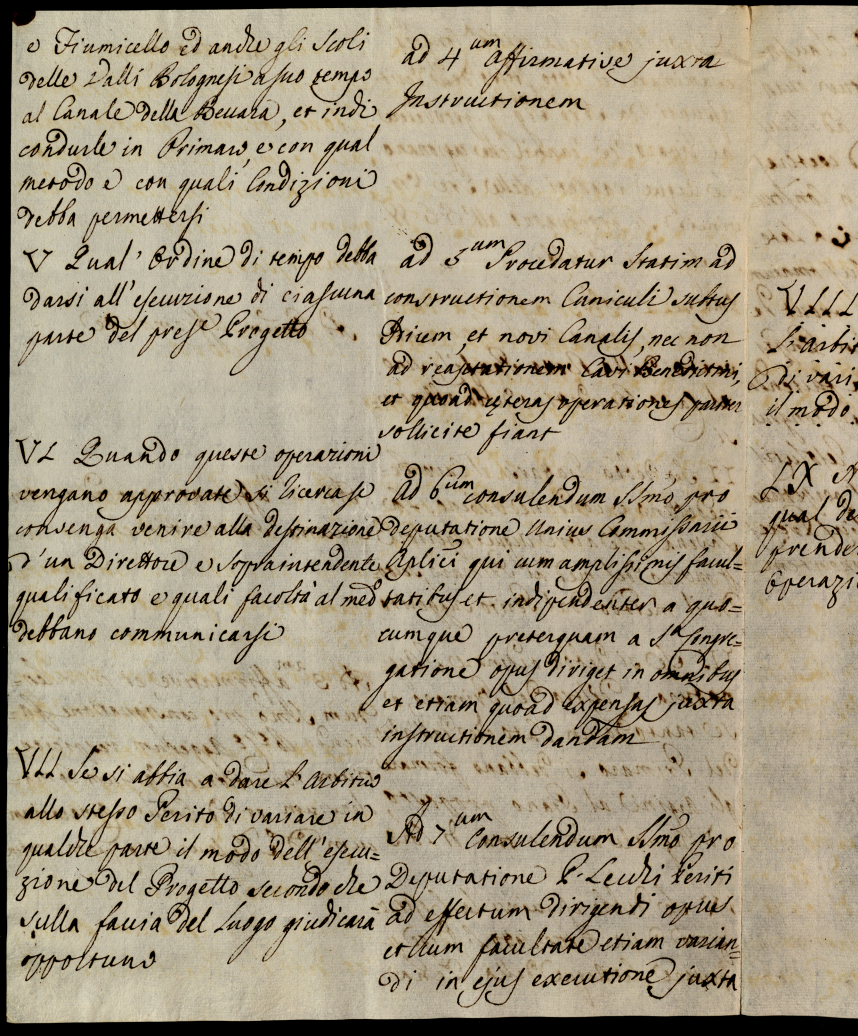 e Fiumicello ed anche gli Scoli
delle Valli Bolognesi a suo tempo
al Canale della Beuara, et indi
condurle in Primaro, e con qual
metodo e con quali Condizioni
debba permettersi
V Qual' Ordine di tempo debba
darsi all' esecuzione di ciascuna
parte del pres.e Progetto
VI Quando queste operazioni
vengano approvate si ricerca se
convenga venire alla destinazione
d'un Direttore e sopraintendente
qualificato e quali facoltà al med.o
debbano communicarsi
VII Se si abbia a dare l'Arbitrio
allo stesso Perito di variare in
qualche parte il modo dell' esecu=
zione del Progetto secondo che
sulla faccia del Luogo giudicarà
opportuno
ad 4.um Affirmative juxta
Instructionem
ad 5.um Procedatur Statim ad
constructionem Cuniculi subtus
Idicem, et novi Canalis, nec non
ad reaptationem Cavi Benedictini,
et quoad cęteras operationes pariter
sollicite fiant
Ad 6.um consulendum SSmo pro
deputatione Unius Commissarii
Aplici qui cum amplissimis facul=
tatibus et indipendenter a quo=
cumque preterquam a S.a Congre=
gatione opus diriget in omnibus
et etiam quoad expensas juxta
instructionem dandam
Ad 7.um Consulendum SSmo pro
Deputatione P. Lecchi Periti
ad effectum dirigendi opus
et cum facultate etiam varian=
di in ejus executione juxta
VIII
l'arbit
di vari
il modo
IX
qual de
prende
operazi